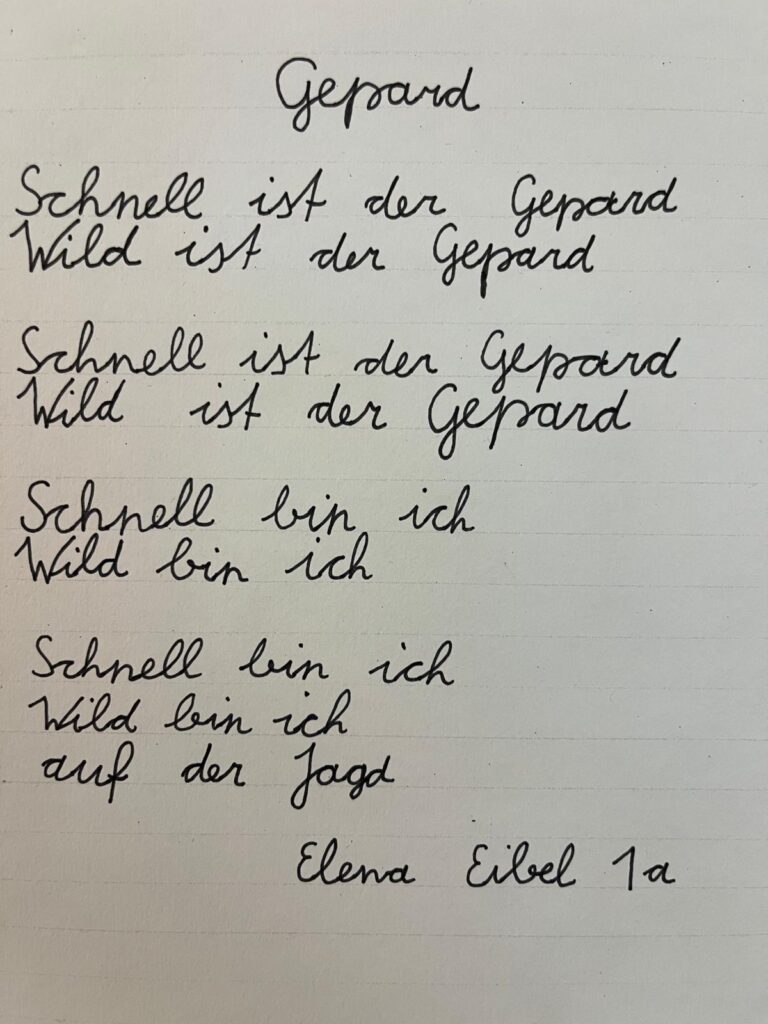 Gepard
Schnell ist der Gepard
Wild ist der Gepard
Schnell ist der Gepard
Wild ist der Gepard
Schnell bin ich
Wild bin ich
Schnell bin ich
Wild bin ich
auf der Jagd
Elena Eibel 1a